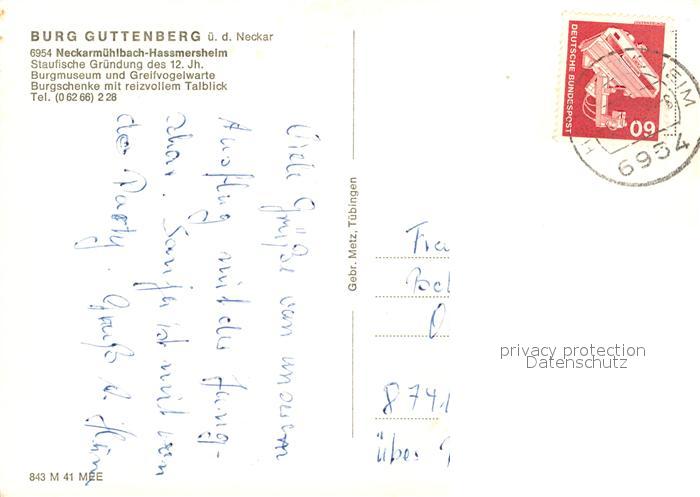 BURG GUTTENBERG ü. d. Neckar
6954 Neckarmühlbach-Hassmersheim
Staufische Gründung des 12. Jh.
Burgmuseum und Greifvogelwarte
Burgschenke mit reizvollem Talblick
Tel. (0 62 66) 2 28
Viele Grüße von unserem
Ausflug mit der Jung-
schar. Sonja ist mit von
der Party. Gruß d.
Gebr. Metz, Tübingen
DEUTSCHE BUNDESPOST
60
6954
8741
über
privacy protection
Datenschutz
843 M 41 MEE